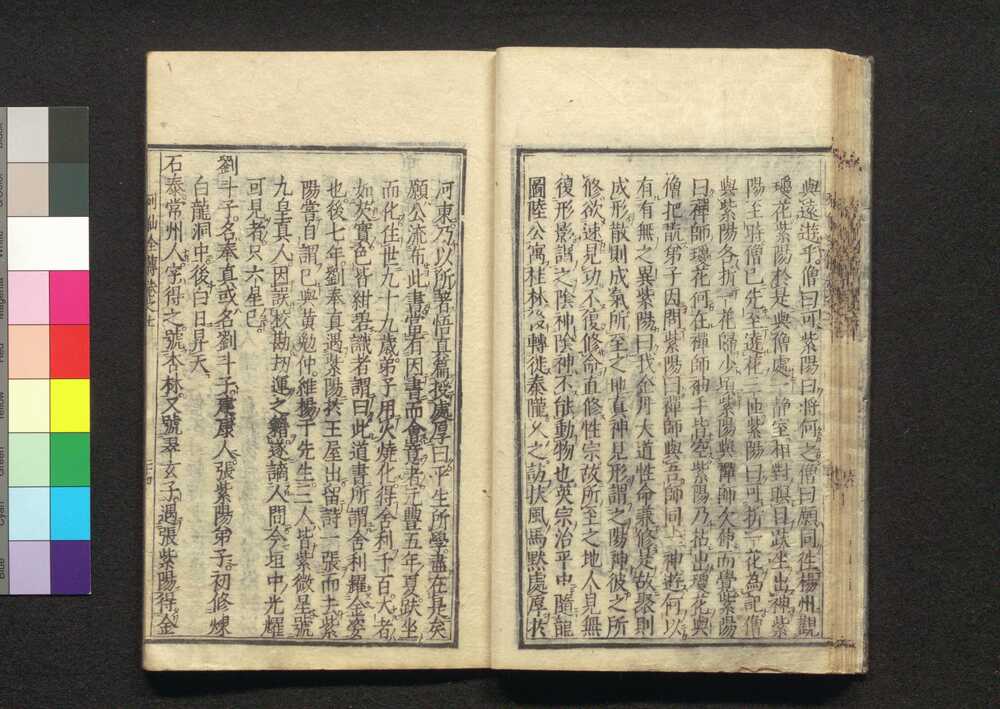 與遠遊乎僧曰可紫陽曰將何之僧曰願同徃楊州觀
瓊花紫陽於是與僧處一静室相對瞑目趺坐出神紫
陽至時僧已先至遶花三匝紫陽曰可折一花為記僧
與紫陽各折一花歸少頃紫陽與禪師欠伸而覺紫陽
曰禪師瓊花何在禪師袖手皆空紫陽乃拈出瓊花與
僧把翫弟子因問紫陽曰禪師與吾師同一神遊何以
有有無之異紫陽曰我金丹大道性命兼修是故聚則
成形散則成氣所至之地真神見形謂之陽神彼之所
修欲速見功不復修命直修性宗故所至之地人見無
復形影謂之陰神陰神不能動物也英宗治平中隨龍
圖陸公寓桂林後轉徙秦隴久之訪扶風馬黙處厚於
河東乃以所著悟真篇授處厚曰平生所學盡在是矣
願公流布此書當有因書而會意者元豐五年夏趺坐
而化住世九十九歳弟子用火燒化得舍利千百大者
如芡實色皆紺碧識者謂曰此道書所謂舍利耀金姿
也後七年劉奉真遇紫陽於王屋出留詩一張而去紫
陽嘗自謂已與黄勉仲維揚于先生三人皆紫微星號
九皇真人因誤校勘刼運之籍遂謫人間今垣中光耀
可見者只六星已
劉斗子名奉真或名劉斗子康康人張紫陽弟子初修煉
白龍洞中後白日昇天
石泰常州人字得之號杏林又號翠玄子遇張紫陽得金